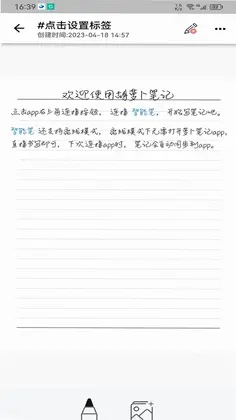 16:39
#点击设置标签
创建时间:2023-04-18 14:57
欢迎使用胡萝卜笔记
点击app右上角连接按钮, 连接 智能笔, 开始写笔记吧。
智能笔 还支持离线模式, 离线模式下无需打开萝卜笔记app,
直接书写即可, 下次连接app时, 笔记会自动同步到app。